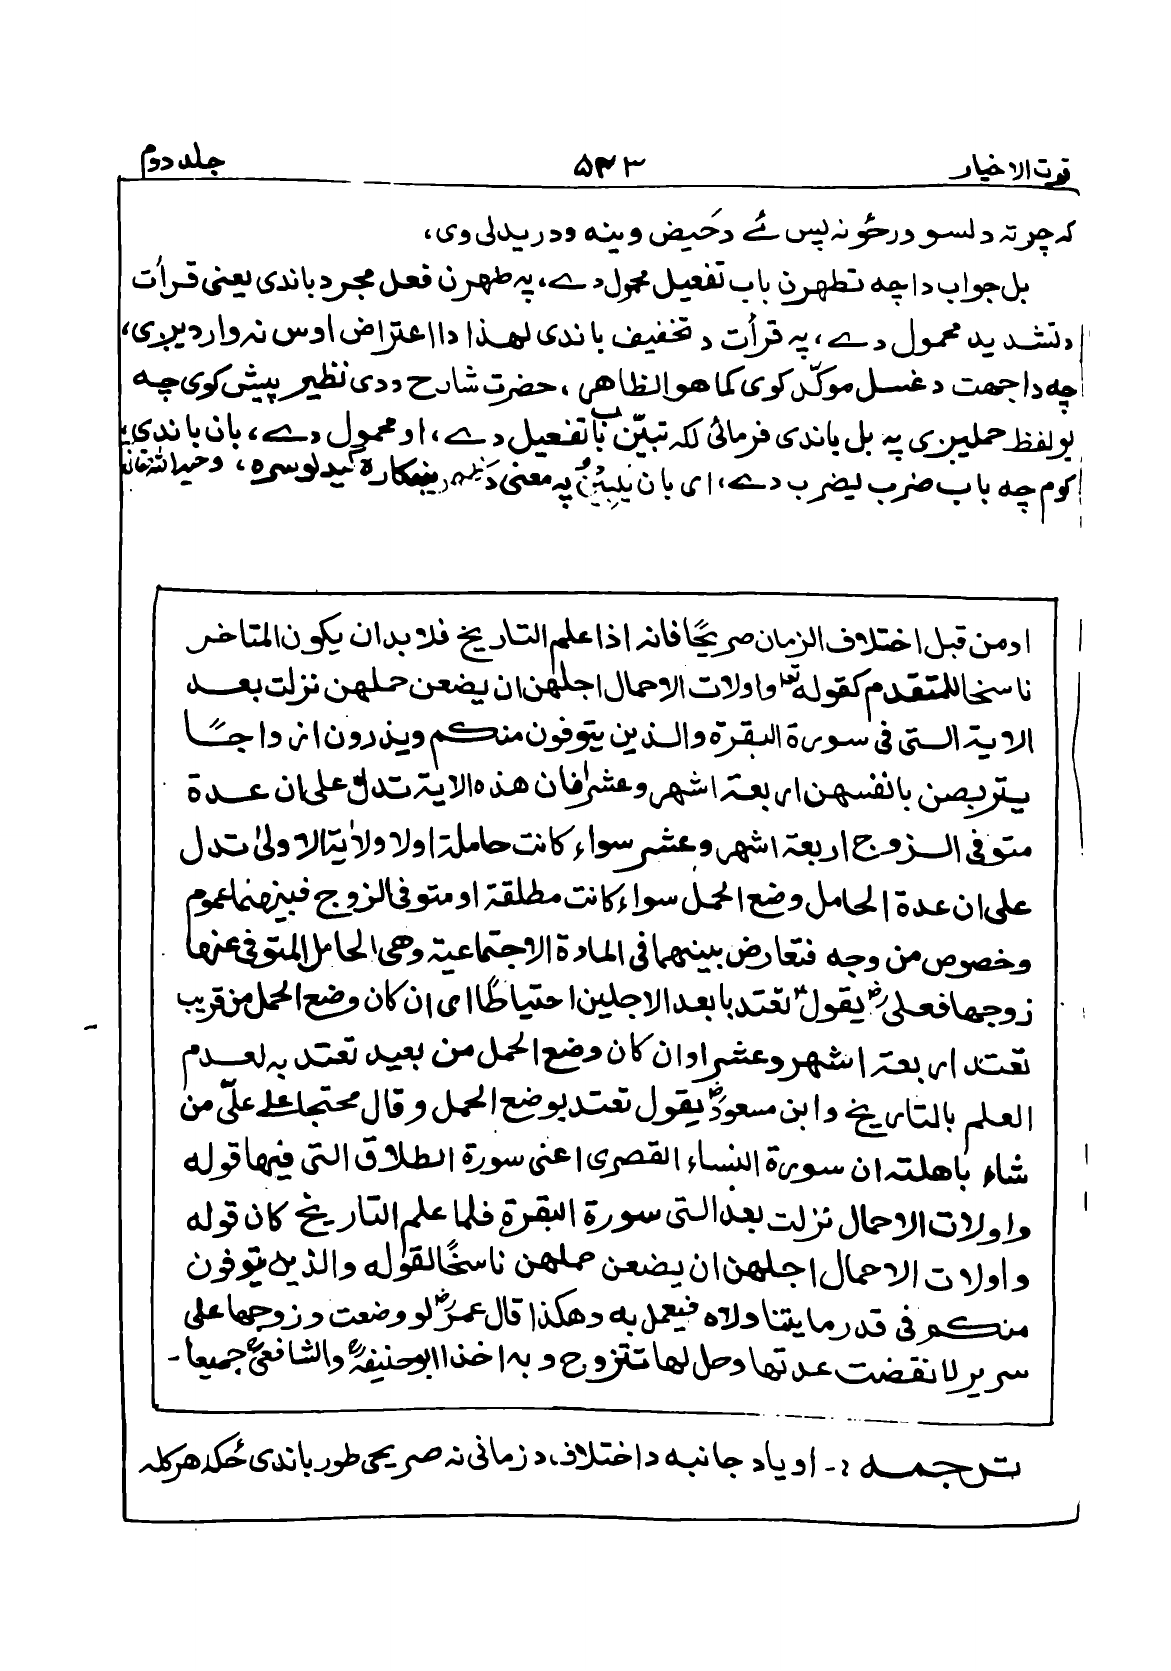 قوت الاخیار
۵۴۳
جلد دوم
که چرته د لسو ورځو نه پس ئے دحیض وینه ودریدلی وی،
بل جواب دا چه تطهرن باب تفعیل محمول دے، په طهرن فعل مجرد باندی یعنی قرأت
د تشدید محمول دے، په قرأت د تخفیف باندی لهذا دا اعتراض اوس نه واردیږی،
چه دا جهت د غسل موکد کوی کما هو الظاهر، حضرت شارح ددی نظیر پیش کوی چه
یو لفظ حملیږی په بل باندی فرمائی لکه تبیّن باب تفعیل دے، او محمول دے، بان باندی،
کوم چه باب ضرب یضرب دے، ای بان یبین په معنی د ښکاره کیدلو سره،
اومن قبل اختلاف الزمان صریحًا فانه اذا علم التاریخ فلا بد ان یکون المتاخر
ناسخا للمتقدم کقوله تعا واولات الاحمال اجلهن ان یضعن حملهن نزلت بعد
الایة التی فی سورة البقرة والذین یتوفون منکم ویذرون ازواجًا
یتربصن بانفسهن اربعة اشهر وعشرا فان هذه الایة تدل علی ان عدة
متوفی الزوج اربعة اشهر وعشر سواء کانت حاملة اولا ولایة الاولیٰ تدل
علی ان عدة الحامل وضع الحمل سواء کانت مطلقة او متوفی الزوج فبینهما عموم
وخصوص من وجه فتعارض بینهما فی المادة الاجتماعیة وهی الحامل المتوفی عنها
زوجها فعلیؓ یقول تعتد بابعد الاجلین احتیاطًا ای ان کان وضع الحمل من قریب
تعتد اربعة اشهر وعشر اوان کان وضع الحمل من بعید تعتد به لعدم
العلم بالتاریخ وابن مسعودؓ یقول تعتد بوضع الحمل وقال محتجا علی علیّ من
شاء باهلته ان سورة النساء القصری اعنی سورة الطلاق التی فیها قوله
واولات الاحمال نزلت بعد التی سورة البقرة فلما علم التاریخ کان قوله
واولات الاحمال اجلهن ان یضعن حملهن ناسخًا لقوله والذین یتوفون
منکم فی قدر ما یتناولاه فیعمل به وهکذا قال عمرؓ لو وضعت وزوجها علی
سریر لانقضت عدتها وحل لها تتزوج وبه اخذا ابوحنیفةؒ والشافعیؒ جمیعا۔
ترجمه :۔ او یا د جانبه د اختلاف، د زمانی نه صریحی طور باندی ځکه هر کله